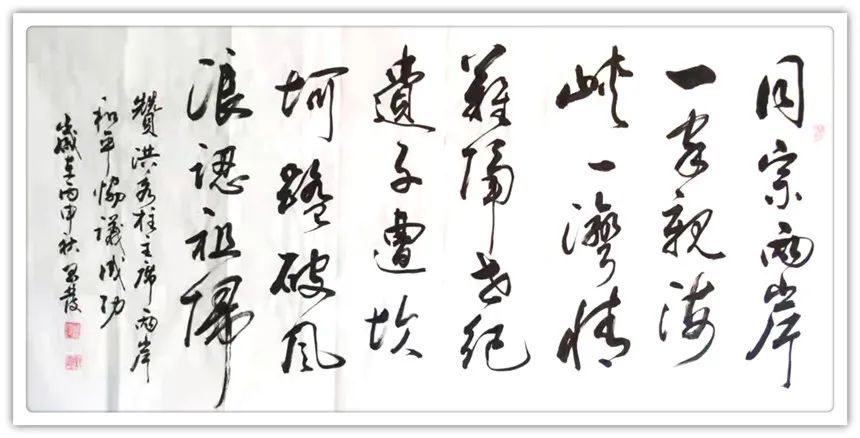 同宗兩岸
一家親海
峽一灣情
難隔世紀
遺子遭坎
坷路破風
浪認祖歸
贊洪秀柱主席兩岸
和平協議成功
歲在丙申秋